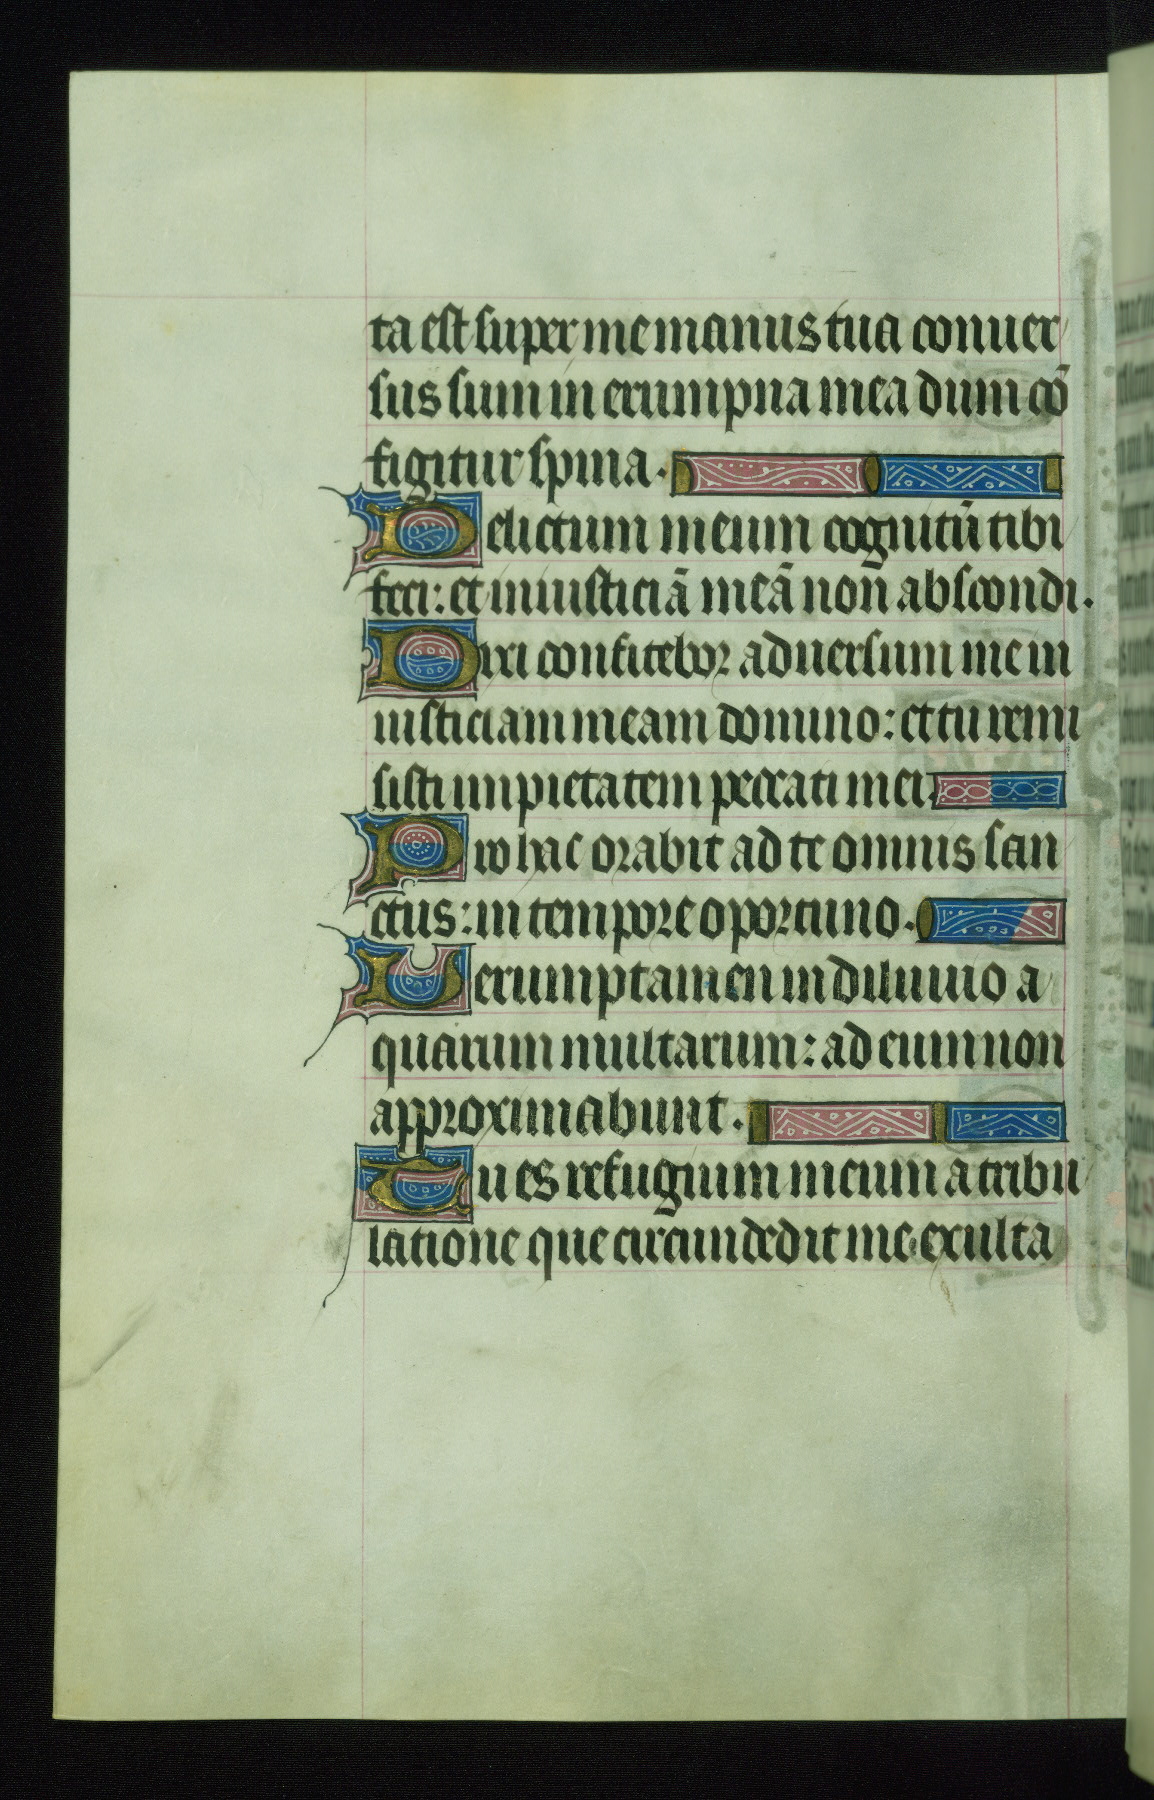 ta est super me manus tua conuer
sus sum in erumpna mea dum cō
figitur spina.
Delictum meum cognitū tibi
feci: et iniusticiā meā non̄ abscondi.
Dixi confitebor aduersum me in
iusticiam meam domino: et tu remi
sisti impietatem peccati mei.
Pro hac orabit ad te omnis san
ctus: in tempore oportuno.
Uerumptamen in diluuio a
quarum multarum: ad eum non
approximabunt.
Tu es refugium meum a tribu
latione que circundedit me exulta